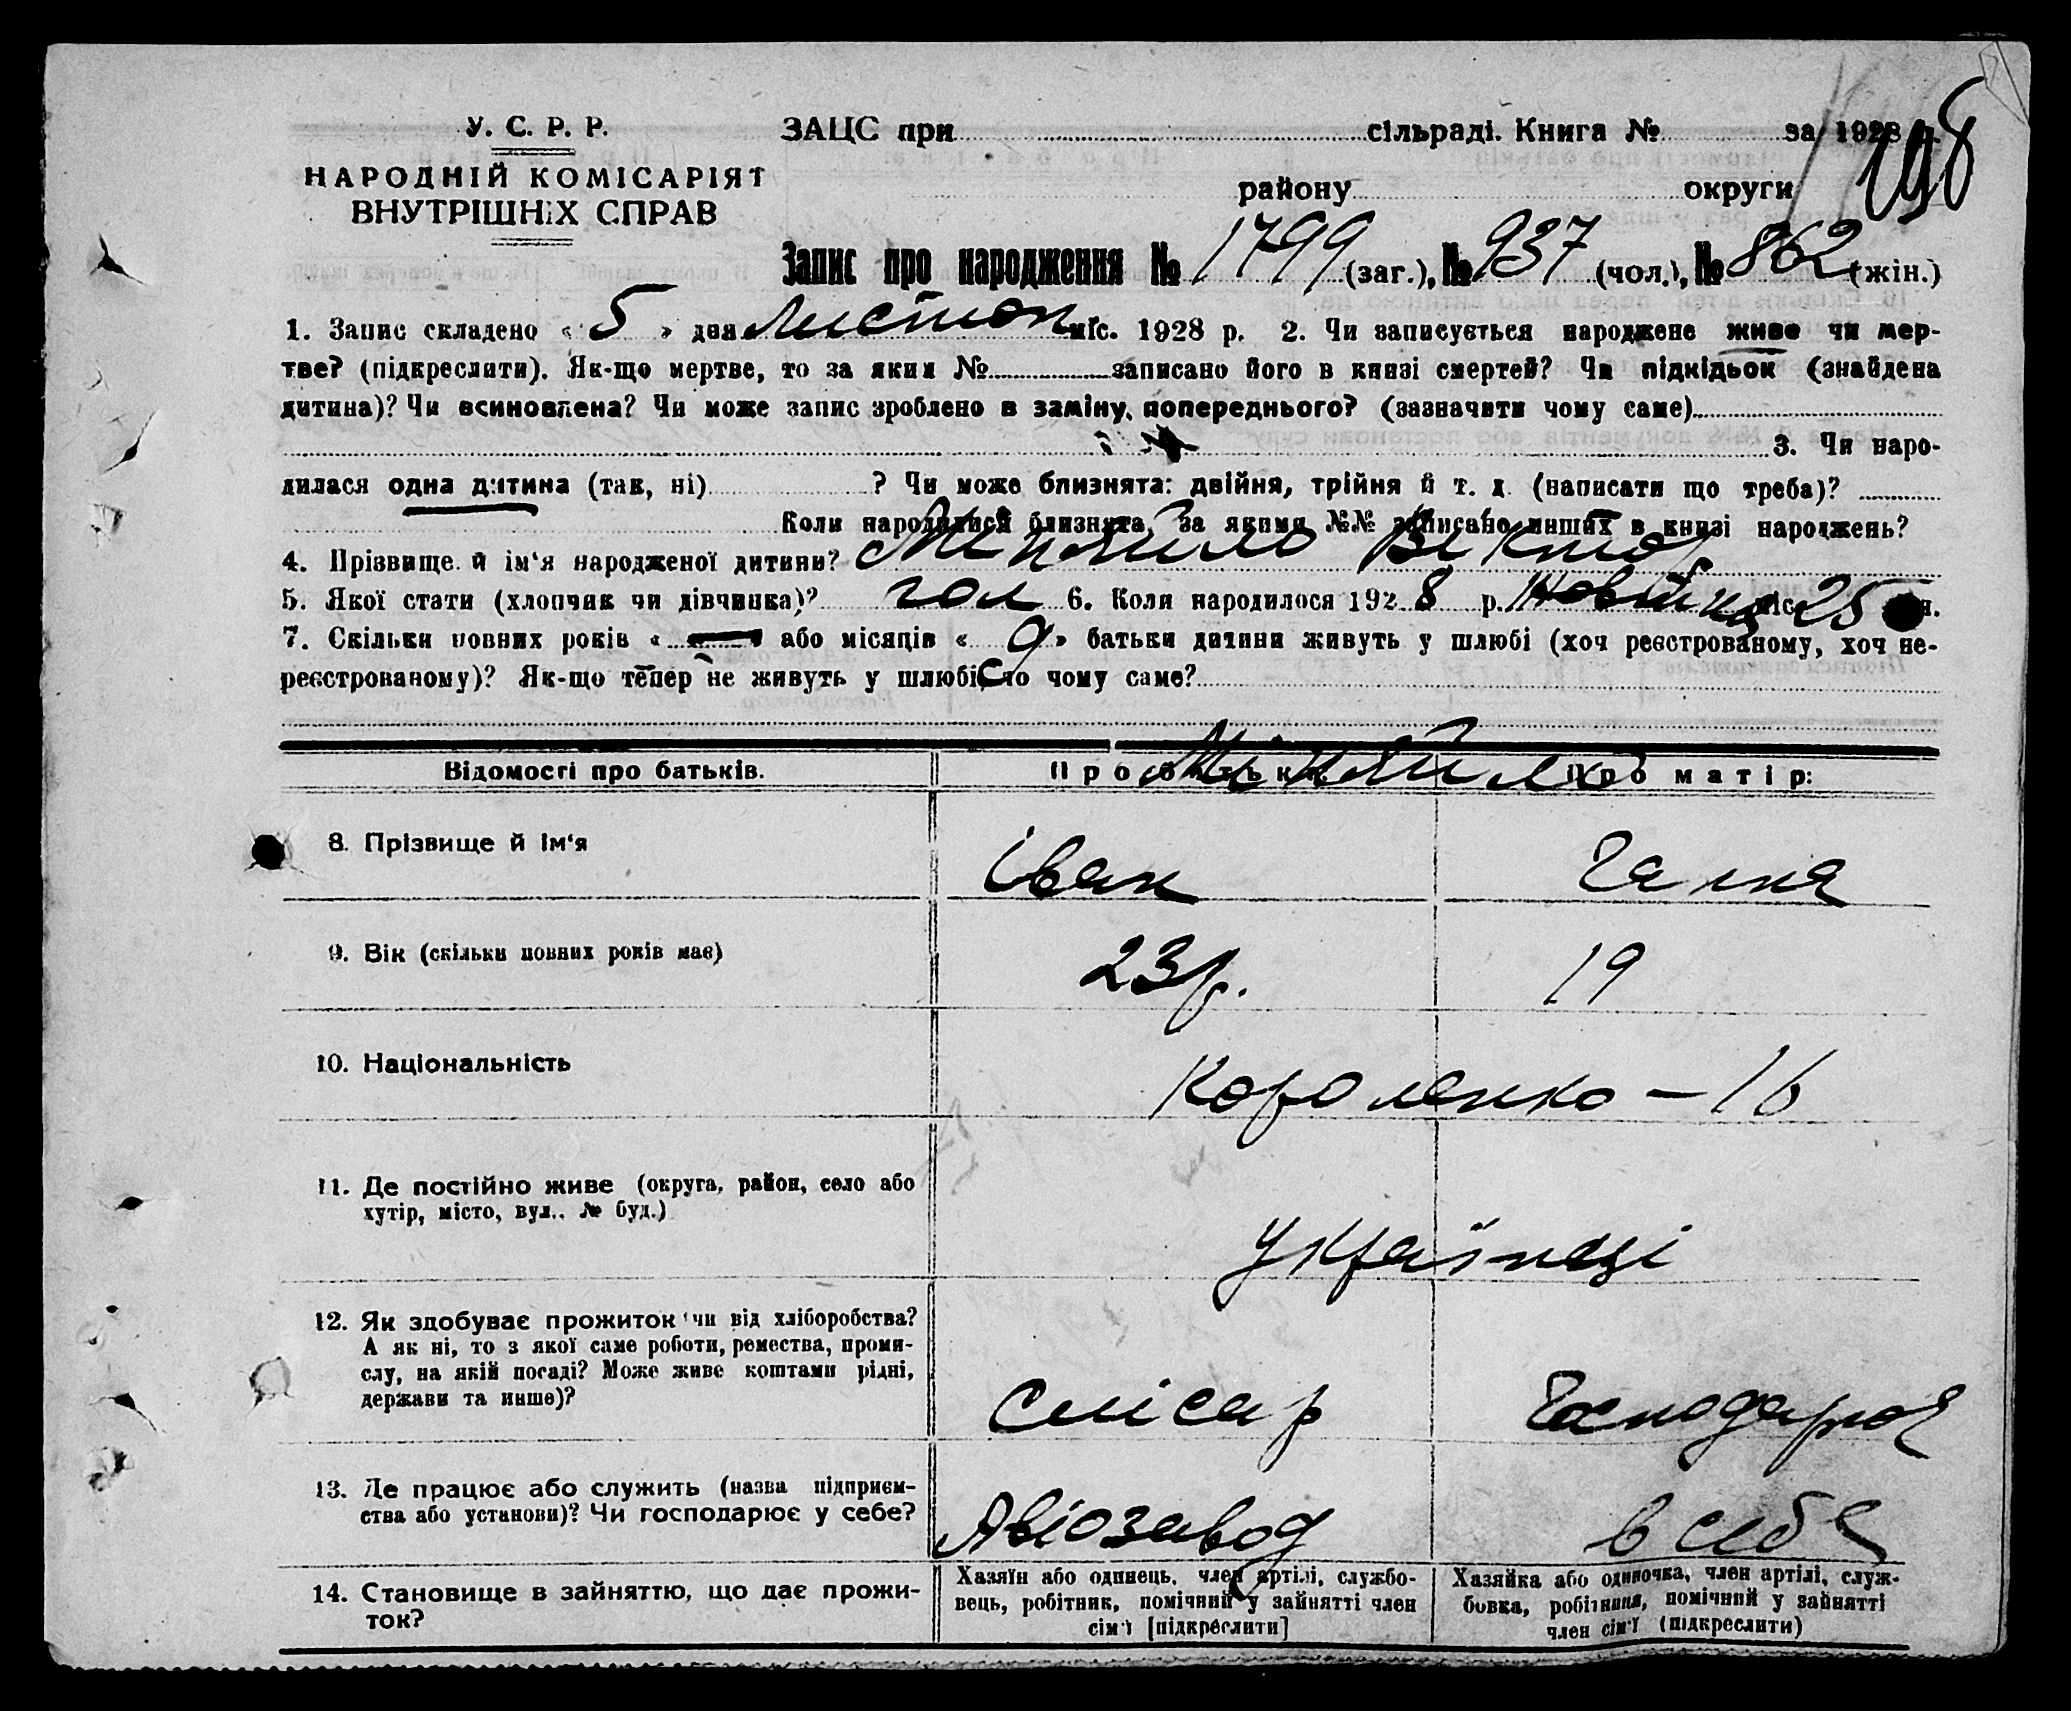 У. С. Р. Р.
НАРОДНІЙ КОМІСАРІЯТ
ВНУТРІШНІХ СПРАВ
ЗАЦС при сільраді. Книга № за 1928 р.
198
району округи
Запис про народження № 1799 (заг.), № 937 (чол.), № 862 (жін.)
1. Запис складено « 5 » дня Листоп міс. 1928 р. 2. Чи записується народжене живе чи мер-
тве? (підкреслити). Як-що мертве, то за яким № записано його в книзі смертей? Чи підкідьок (знайдена
дитина)? Чи всиновлена? Чи може запис зроблено в заміну попереднього? (зазначити чому саме)
3. Чи наро-
дилася одна дитина (так, ні) ? Чи може близнята: двійня, трійня й т. д. (написати що треба)?
Коли народилися близнята, за якими №№ записано инших в книзі народжень?
4. Прізвище й ім'я народженої дитини? Міняйло Віктор
5. Якої стати (хлопчик чи дівчинка)? чол 6. Коли народилося 192 8 р. Жовтня міс. 25 дня.
7. Скільки повних років « — » або місяців « 9 » батьки дитини живуть у шлюбі (хоч реєстрованому, хоч не-
реєстрованому)? Як-що тепер не живуть у шлюбі, то чому саме?
Відомості про батьків. Про батька: Про матір:
Міняйло
8. Прізвище й ім'я Іван Галина
9. Вік (скільки повних років має) 23 р. 19
10. Національність Короленко – 16
11. Де постійно живе (округа, район, село або
хутір, місто, вул., № буд.)
Українці
12. Як здобуває прожиток чи від хліборобства?
А як ні, то з якої саме роботи, ремества, проми-
слу, на якій посаді? Може живе коштами рідні,
держави та инше)?
Слюсар Господарює
13. Де працює або служить (назва підприєм-
ства або установи)? Чи господарює у себе?
Авіозавод в себе
14. Становище в зайняттю, що дає прожи-
ток?
Хазяїн або одинець, член артілі, службо-
вець, робітник, помічний у зайнятті член
сім'ї [підкреслити]
Хазяйка або одиночка, член артілі, служ-
бовка, робітниця, помічний у зайнятті
член сім'ї (підкреслити)